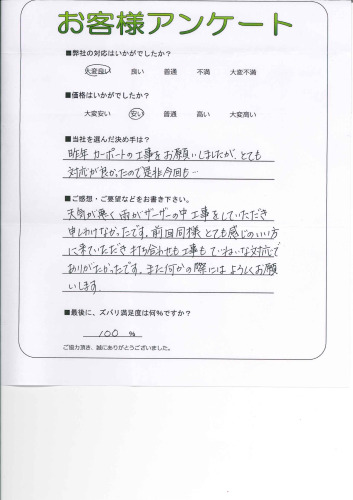 お客様アンケート
■弊社の対応はいかがでしたか?
大変良い 良い 普通 不満 大変不満
■価格はいかがでしたか?
大変安い 安い 普通 高い 大変高い
■当社を選んだ決め手は?
昨年 カーポートの工事をお願いしましたが、とても
対応が良かったので是非今回も…
■ご感想・ご要望などをお書き下さい。
天気が悪く雨がザーザーの中工事をしていただき
申しわけなかったです。前回同様とても感じのいい方
に来ていただき打ち合わせも工事もていねいな対応で
ありがたかったです。また何かの際にはよろしくお願
いします。
■最後に、ズバリ満足度は何%ですか?
100 %
ご協力頂き、誠にありがとうございました。